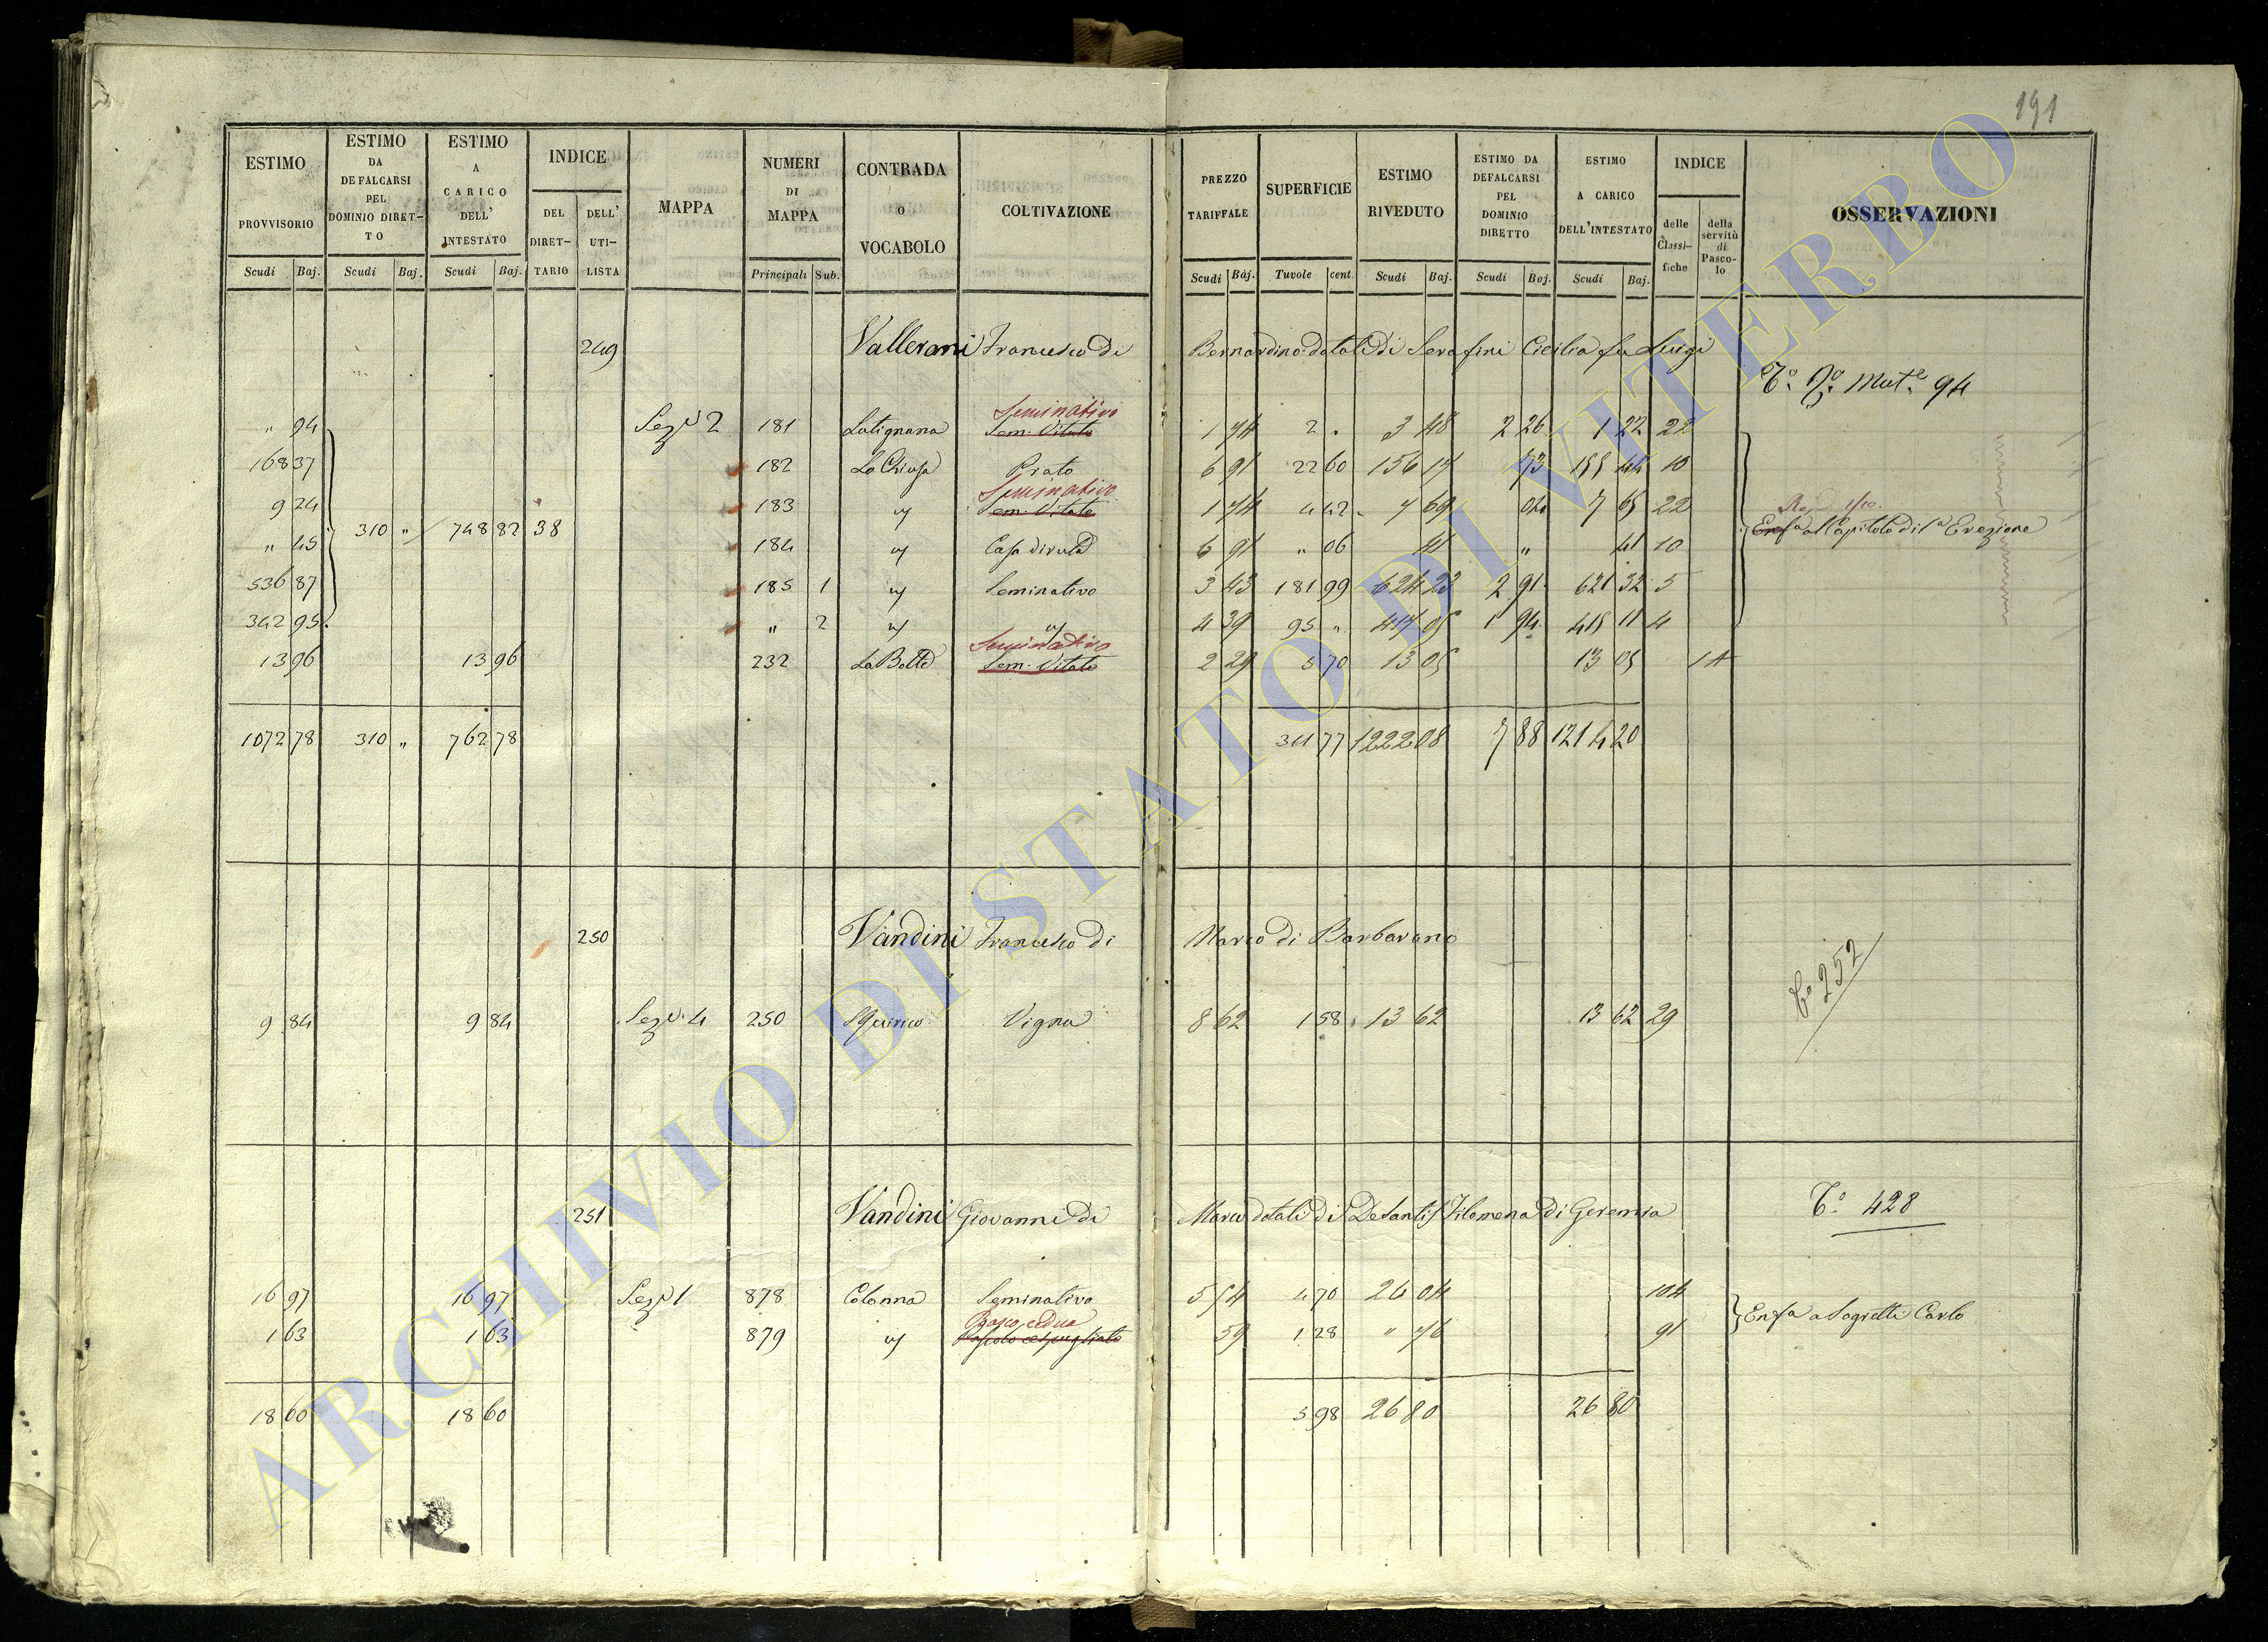 191
ESTIMO PROVVISORIO Scudi Baj.
ESTIMO DA DEFALCARSI PEL DOMINIO DIRET-TO Scudi Baj.
ESTIMO A CARICO DELL' INTESTATO Scudi Baj.
INDICE DEL DIRET-TARIO DELL' UTI-LISTA
MAPPA
NUMERI DI MAPPA Principali Sub.
CONTRADA o VOCABOLO
COLTIVAZIONE
PREZZO TARIFFALE Scudi Baj.
SUPERFICIE Tavole cent.
ESTIMO RIVEDUTO Scudi Baj.
ESTIMO DA DEFALCARSI PEL DOMINIO DIRETTO Scudi Baj.
ESTIMO A CARICO DELL'INTESTATO Scudi Baj.
INDICE delle Classi-fiche della servitù di Pasco-lo
OSSERVAZIONI
249 Vallerani Francesco di Bernardino dotali di Serafini Cicilia fu Luigi
Mut.e 94
Seminativo
" 94 Sez.e 2 181 Latignana Sem. Vitato 1 74 2 . 3 48 2 26 1 22 22
168 37 182 La Chiusa Prato 6 91 22 60 156 17 73 155 44 10
Seminativo
9 24 183 " Sem. Vitato 1 74 4 42 7 69 04 7 65 22
310 " 748 82 38
Enfa al Capitolo di 1a Erezione
" 45 184 " Casa diruta 6 91 " 06 41 " 41 10
536 87 185 1 " Seminativo 3 43 181 99 624 23 2 91 621 32 5
342 95 " 2 " " 4 39 95 " 417 05 1 94 415 11 4
Seminativo
13 96 13 96 232 La Botte Sem. Vitato 2 29 5 70 13 05 13 05 14
1072 78 310 " 762 78 311 77 1222 08 7 88 1214 20
250 Vandini Francesco di Marco di Barbarano
To 252
9 84 9 84 Sez.e 4 250 S Quirico Vigna 8 62 1 58 13 62 13 62 29
251 Vandini Giovanni di Marco dotali di DeSantis Filomena di Geremia
To 428
16 97 16 97 Sez.e 1 878 Colonna Seminativo 5 54 4 70 26 04 104
Bosco ceduo
1 63 1 63 879 " Pascolo cespugliato 59 1 28 " 76 91
Enfa a Sagretti Carlo
18 60 18 60 5 98 26 80 26 80
ARCHIVIO DI STATO DI VITERBO